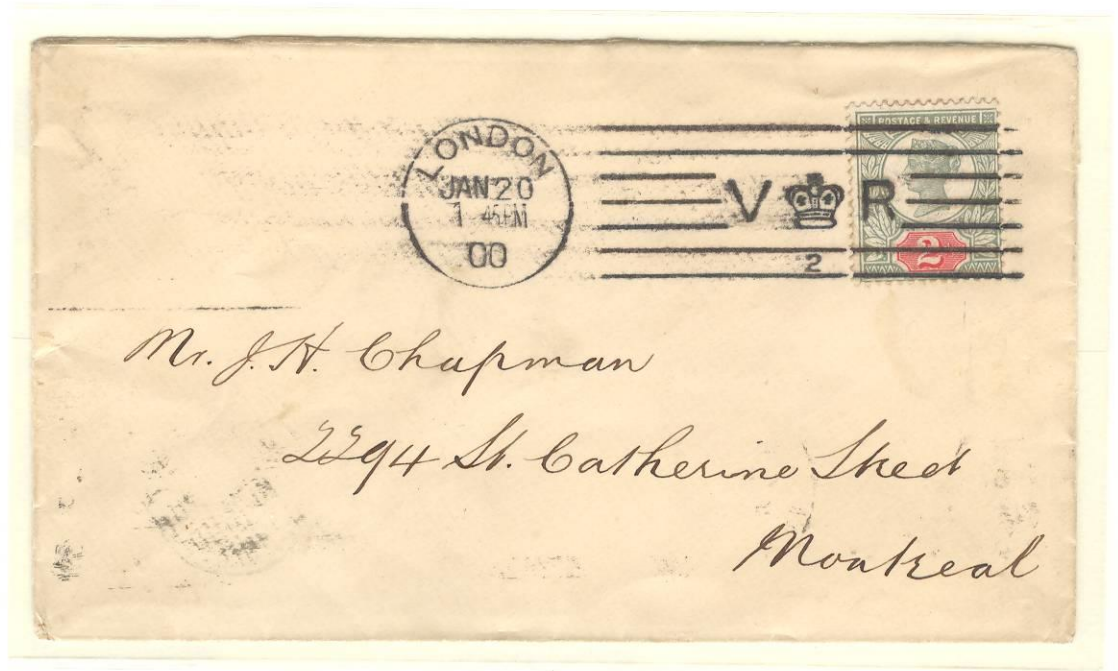 LONDON
JAN 20
1 45PM
00
V R
2
POSTAGE & REVENUE
2
Mr. J. H. Chapman
2294 St. Catherine Street
Montreal